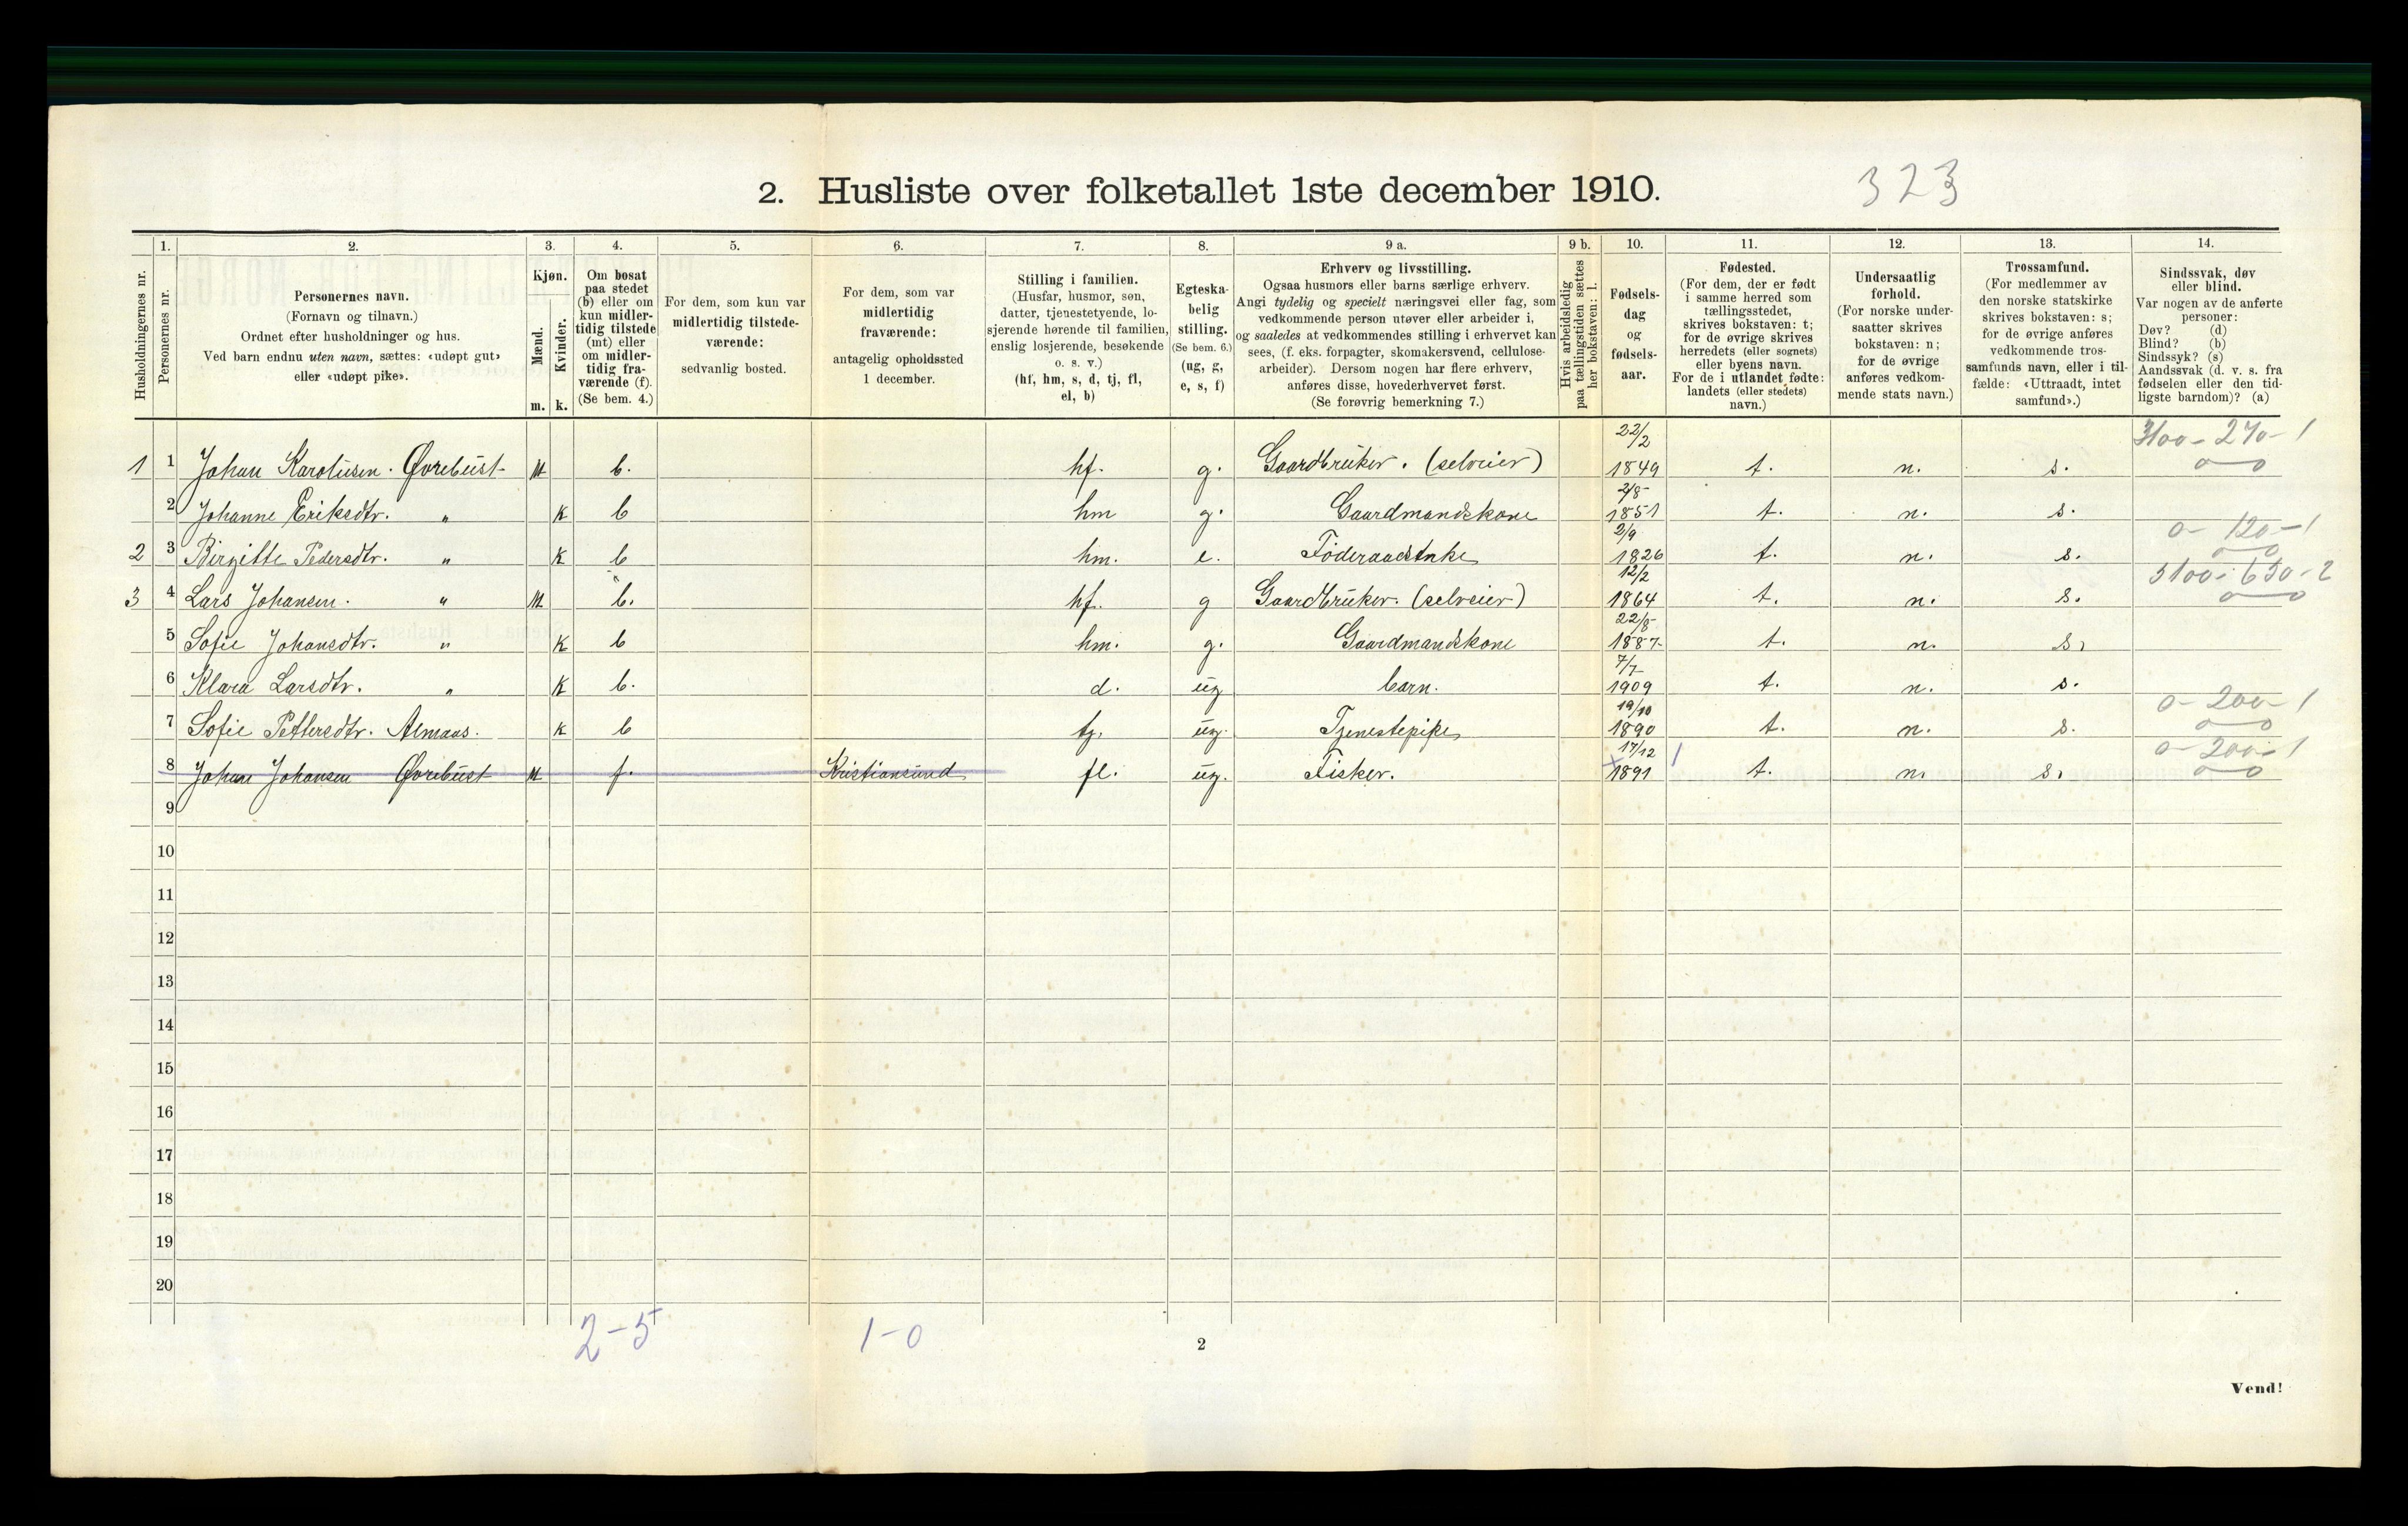 2. Husliste over folketallet 1ste december 1910. 323
1. 2. 3. 4. 5. 6. 7. 8. 9 a. 9 b. 10. 11. 12. 13. 14.
Husholdningernes nr.
Personernes nr.
Personernes navn.
(Fornavn og tilnavn.)
Ordnet efter husholdninger og hus.
Ved barn endnu uten navn, sættes: «udøpt gut»
eller «udøpt pike».
Kjøn.
Mænd.
Kvinder.
m. k.
Om bosat
paa stedet
(b) eller om
kun midler-
tidig tilstede
(mt) eller
om midler-
tidig fra-
værende (f).
(Se bem. 4.)
For dem, som kun var
midlertidig tilstede-
værende:
sedvanlig bosted.
For dem, som var
midlertidig
fraværende:
antagelig opholdssted
1 december.
Stilling i familien.
(Husfar, husmor, søn,
datter, tjenestetyende, lo-
sjerende hørende til familien,
enslig losjerende, besøkende
o. s. v.)
(hf, hm, s, d, tj, fl,
el, b)
Egteska-
belig
stilling.
(Se bem. 6.)
(ug, g,
e, s, f)
Erhverv og livsstilling.
Ogsaa husmors eller barns særlige erhverv.
Angi tydelig og specielt næringsvei eller fag, som
vedkommende person utøver eller arbeider i,
og saaledes at vedkommendes stilling i erhvervet kan
sees, (f. eks. forpagter, skomakersvend, cellulose-
arbeider). Dersom nogen har flere erhverv,
anføres disse, hovederhvervet først.
(Se forøvrig bemerkning 7.)
Hvis arbeidsledig
paa tællingstiden sættes
her bokstaven: l.
Fødsels-
dag
og
fødsels-
aar.
Fødested.
(For dem, der er født
i samme herred som
tællingsstedet,
skrives bokstaven: t;
for de øvrige skrives
herredets (eller sognets)
eller byens navn.
For de i utlandet fødte:
landets (eller stedets)
navn.)
Undersaatlig
forhold.
(For norske under-
saatter skrives
bokstaven: n;
for de øvrige
anføres vedkom-
mende stats navn.)
Trossamfund.
(For medlemmer av
den norske statskirke
skrives bokstaven: s;
for de øvrige anføres
vedkommende tros-
samfunds navn, eller i til-
fælde: «Uttraadt, intet
samfund».)
Sindssvak, døv
eller blind.
Var nogen av de anførte
personer:
Døv? (d)
Blind? (b)
Sindssyk? (s)
Aandssvak (d. v. s. fra
fødselen eller den tid-
ligste barndom)? (a)
1 1 Johan Karolusen. Øvrebust M b. hf. g. Gaardbruker. (selveier) 22/2 1849 t. n. s. 3100-270-1
2 Johanne Eriksdtr. " K b hm g. Gaardmandskone 2/8 1851 t. n. s.
2 3 Birgitte Pedersdtr. " K b hm. e. Føderaadsenke 2/9 1826 t. n. s. 0-120-1
3 4 Lars Johansen. " M b. hf. g Gaardbruker. (selveier) 12/2 1864 t. n. s. 5100-650-2
5 Sofie Johansdtr. " K b hm. g. Gaardmandskone 22/8 1887 t. n. s.
6 Klara Larsdtr. " K b. d. ug barn. 7/7 1909 t. n. s.
7 Sofie Pettersdtr. Almaas. K b tj. ug. Tjenestepike 19/10 1890 t. n. s. 0-200-1
8 Johan Johansen Øvrebust M f. Kristiansund fl. ug. Fisker. 17/12 1891 t. n. s. 0-200-1
9
10
11
12
13
14
15
16
17
18
19
20
2-5 1-0
2
Vend!